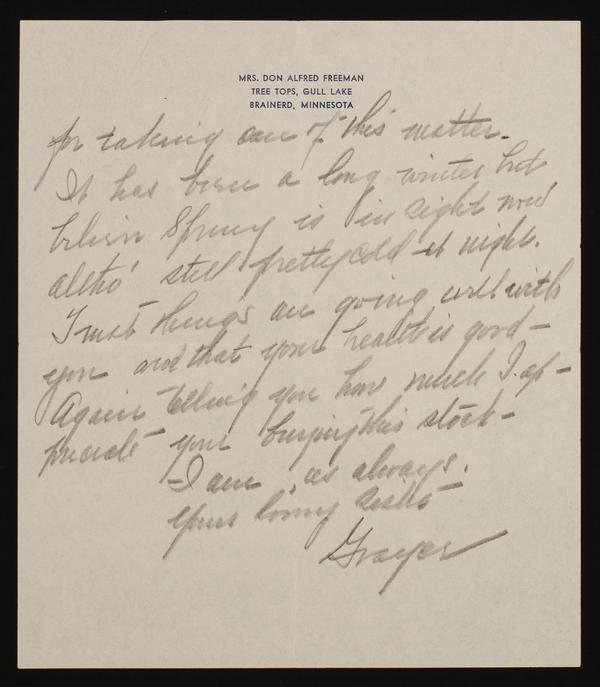 MRS. DON ALFRED FREEMAN
TREE TOPS, GULL LAKE
BRAINERD, MINNESOTA
for taking care of this matter.
It has been a long winter but
believe Spring is in sight now
altho' still pretty cold at night.
Trust things are going well with
you and that your health is good –
Again telling you how much I ap –
preciate your buying this stock –
– I am, as always.
Yours loving sister